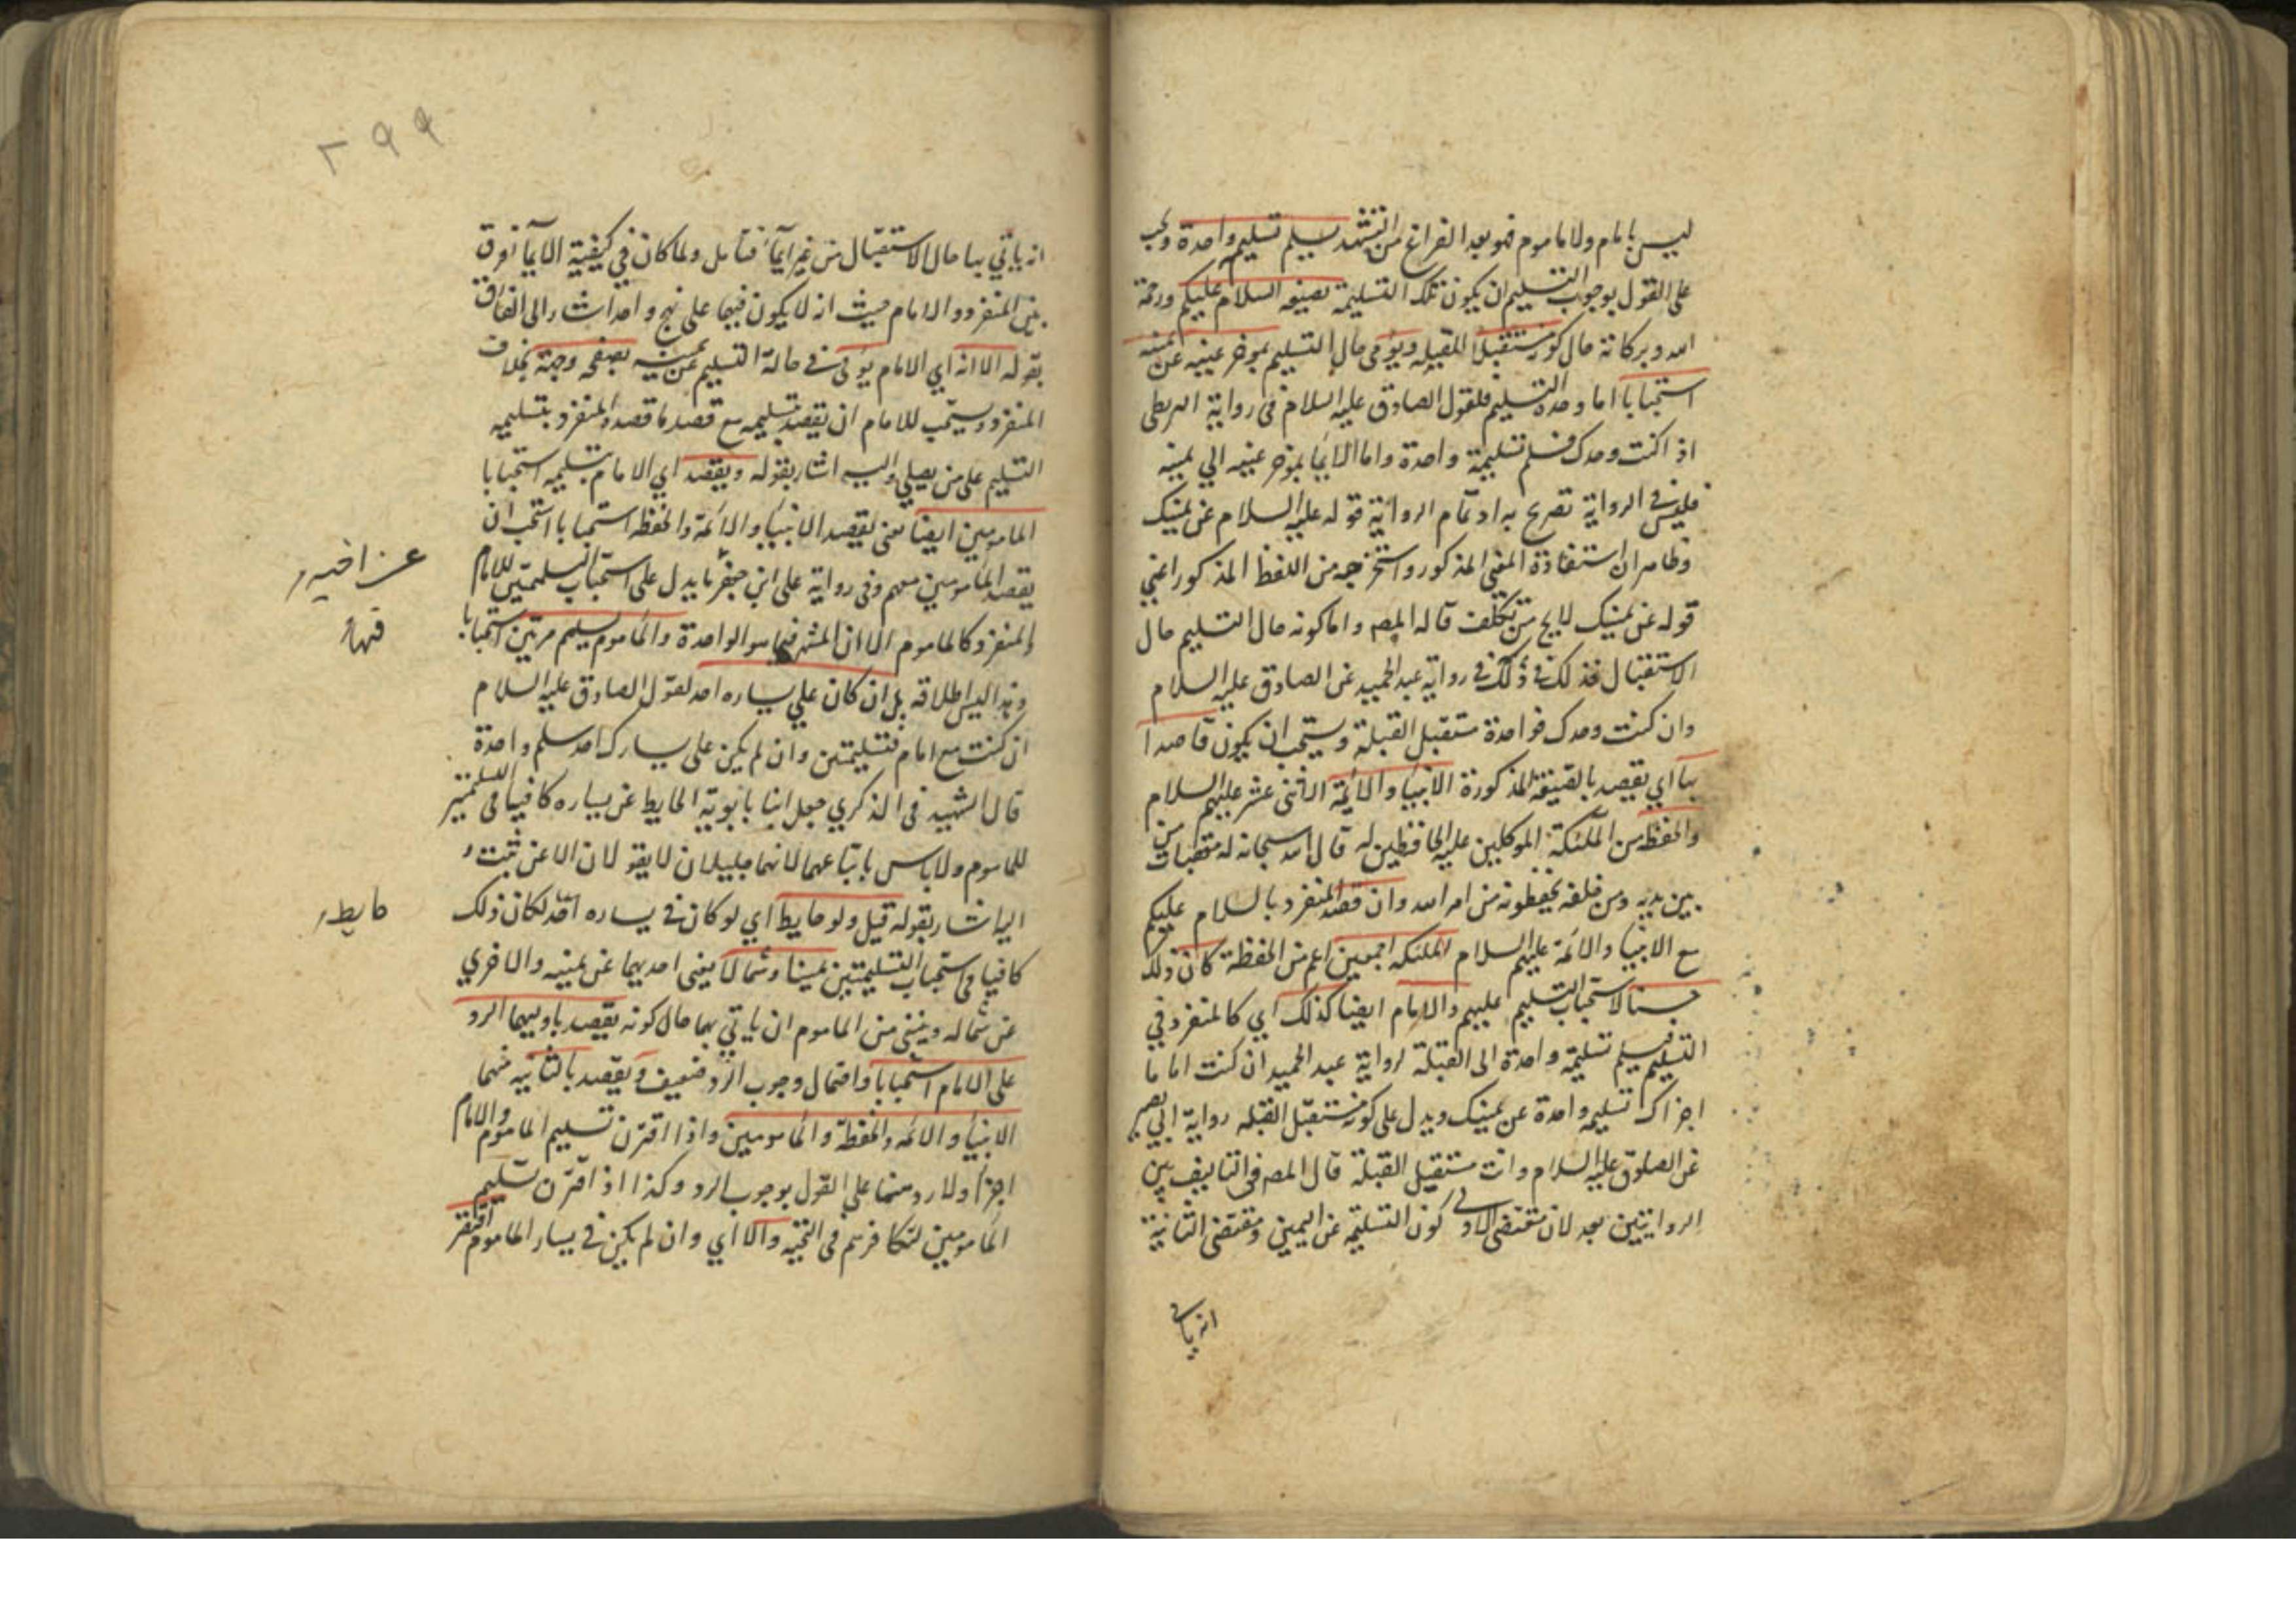 ليس بامام ولا ماموم فهو بعد الفراغ من التشهد يسلم تسليمة واحدة ويجب
على القول بوجوب التسليم ان يكون تلك التسليمة بصيغه السلام عليكم ورحمة
الله وبركاته حال كونه مستقبل القبله ويومى حال التسليم بموخر عينيه عن يمينه
استحبابا اما وحدة التسليم فلقول الصادق عليه السلام فى رواية البزنطى
اذا كنت وحدك فسلم تسليمة واحدة واما الايما بموخر عينيه الي يمينه
فليس فى الرواية تصريح به اذ تمام الرواية قوله عليه السلام عن يمينك
وظاهر ان استفادة المعنى المذكور واستخرجه من اللفظ المذكور اعني
قوله عن يمينك لا يخ من تكلف قاله المصه واما كونه حال التسليم حال
الاستقبال فذلك فى رواية عبد الحميد عن الصادق عليه السلام
وان كنت وحدك فواحدة مستقبل القبلة ويستحب ان يكون قاصدا
بها اي يقصد بالصيغة المذكورة الانبيا والائمة الاثنى عشر عليهم السلام
والحفظه من الملئكة الموكلين عليه الحافظين له قال الله سبحانه له معقبات من
بين يديه ومن خلفه يحفظونه من امر الله وان قصد المنفرد بالسلام عليكم
مع الانبيا والائمة عليهم السلام الملئكه اجمعين اعم من الحفظة كان ذلك
حسنا لاستحباب التسليم عليهم والامام ايضا كذلك اي كالمنفرد في
التسليم فيسلم تسليمة واحدة الى القبلة لرواية عبد الحميد ان كنت اماما
اجزاك تسليمة واحدة عن يمينك ويدل على كونه مستقبل القبله رواية ابي بصير
عن الصادق عليه السلام وانت مستقبل القبلة قال المصه فى التاليف بين
الروايتين بعد لان مقتضى الاولى كون التسليمة عن اليمين ومقتضى الثانية
انه ياتى
٢٩٩
انه ياتي بها حال الاستقبال من غير ايمآء فتامل ولما كان في كيفية الايمآ فرق
بين المنفرد والامام حيث انه لا يكون فيهما على نهج واحد اشار الى الفارق
بقوله الا انه اي الامام يومى في حالة التسليم عن يمينه بصفحه وجهة بخلاف
المنفرد ويستحب للامام ان يقصد بتسليمه مع قصد ما قصده المنفرد بتسليمه
التسليم على من يصلي واليه اشار بقوله ويقصد اي الامام بتسليمه استحبابا
المامومين ايضا يعنى يقصد الانبيا والائمة والحفظه استحبابا استحب ان
يقصد المامومين معهم وفى رواية على ابن جعفر ما يدل على استحباب التسليمتين للامام
عن اخيه
والمنفرد كالماموم الا ان المشهر فيهما هو الواحدة والماموم يسلم مرتين استحبابا
فيهما
وهذا ليس اطلاقه بل ان كان علي يساره احد لقول الصادق عليه السلام
ان كنت مع امام فتسليمتين وان لم يكن على يسارك احد سلم واحدة
قال الشهيد فى الذكري جعل ابنا بابويه الحايط عن يساره كافيا فى التسليمتين
للماموم ولا باس باتباعهما لانهما جليلان لا يقولان الا عن ثبت و
اليه اشار بقوله قيل ولو حايط اي لو كان فى يساره لكان ذلك
حايط
كافيا فى استحباب التسليمتين يمينا وشمالا يعنى احديهما عن يمينه والاخري
عن شماله وينبغى من الماموم ان ياتي بهما حال كونه يقصد باوليهما الرد
على الامام استحبابا واحتمال وجوب الرد ضعيف ويقصد بالثانيه منهما
الانبيا والائمه والحفظة والمامومين واذا اقترن تسليم الماموم والامام
اجزا ولا رد منهما على القول بوجوب الرد وكذا اذا اقترن تسليم
المامومين لتكافوهم فى التحيه والا اي وان لم يكن فى يسار الماموم اقتصر